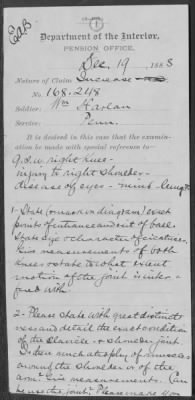 Department of the Interior,
PENSION OFFICE,
Dec. 19, 1883
Nature of Claim Increase
No. 168.248
Soldier: Wm Harlan
Service: Penn.
It is desired in this case that the examination
be made with special reference to—
g.s.w. right knee—
injury to right shoulder
disease of eyes—
1- State (on diagram) exact
points of entrance and exit of ball.
State size & character of cicatrices.
Give measurements of both
knees & state to what extent
motion of the joint is inter-
fered with.
2- Please state with great distinct-
ness and detail the exact condition
of the clavicle & shoulder joint.
Is there much atrophy of muscles
around the shoulder or of the
arm. Give measurements. Can
he use the joint? Please make your